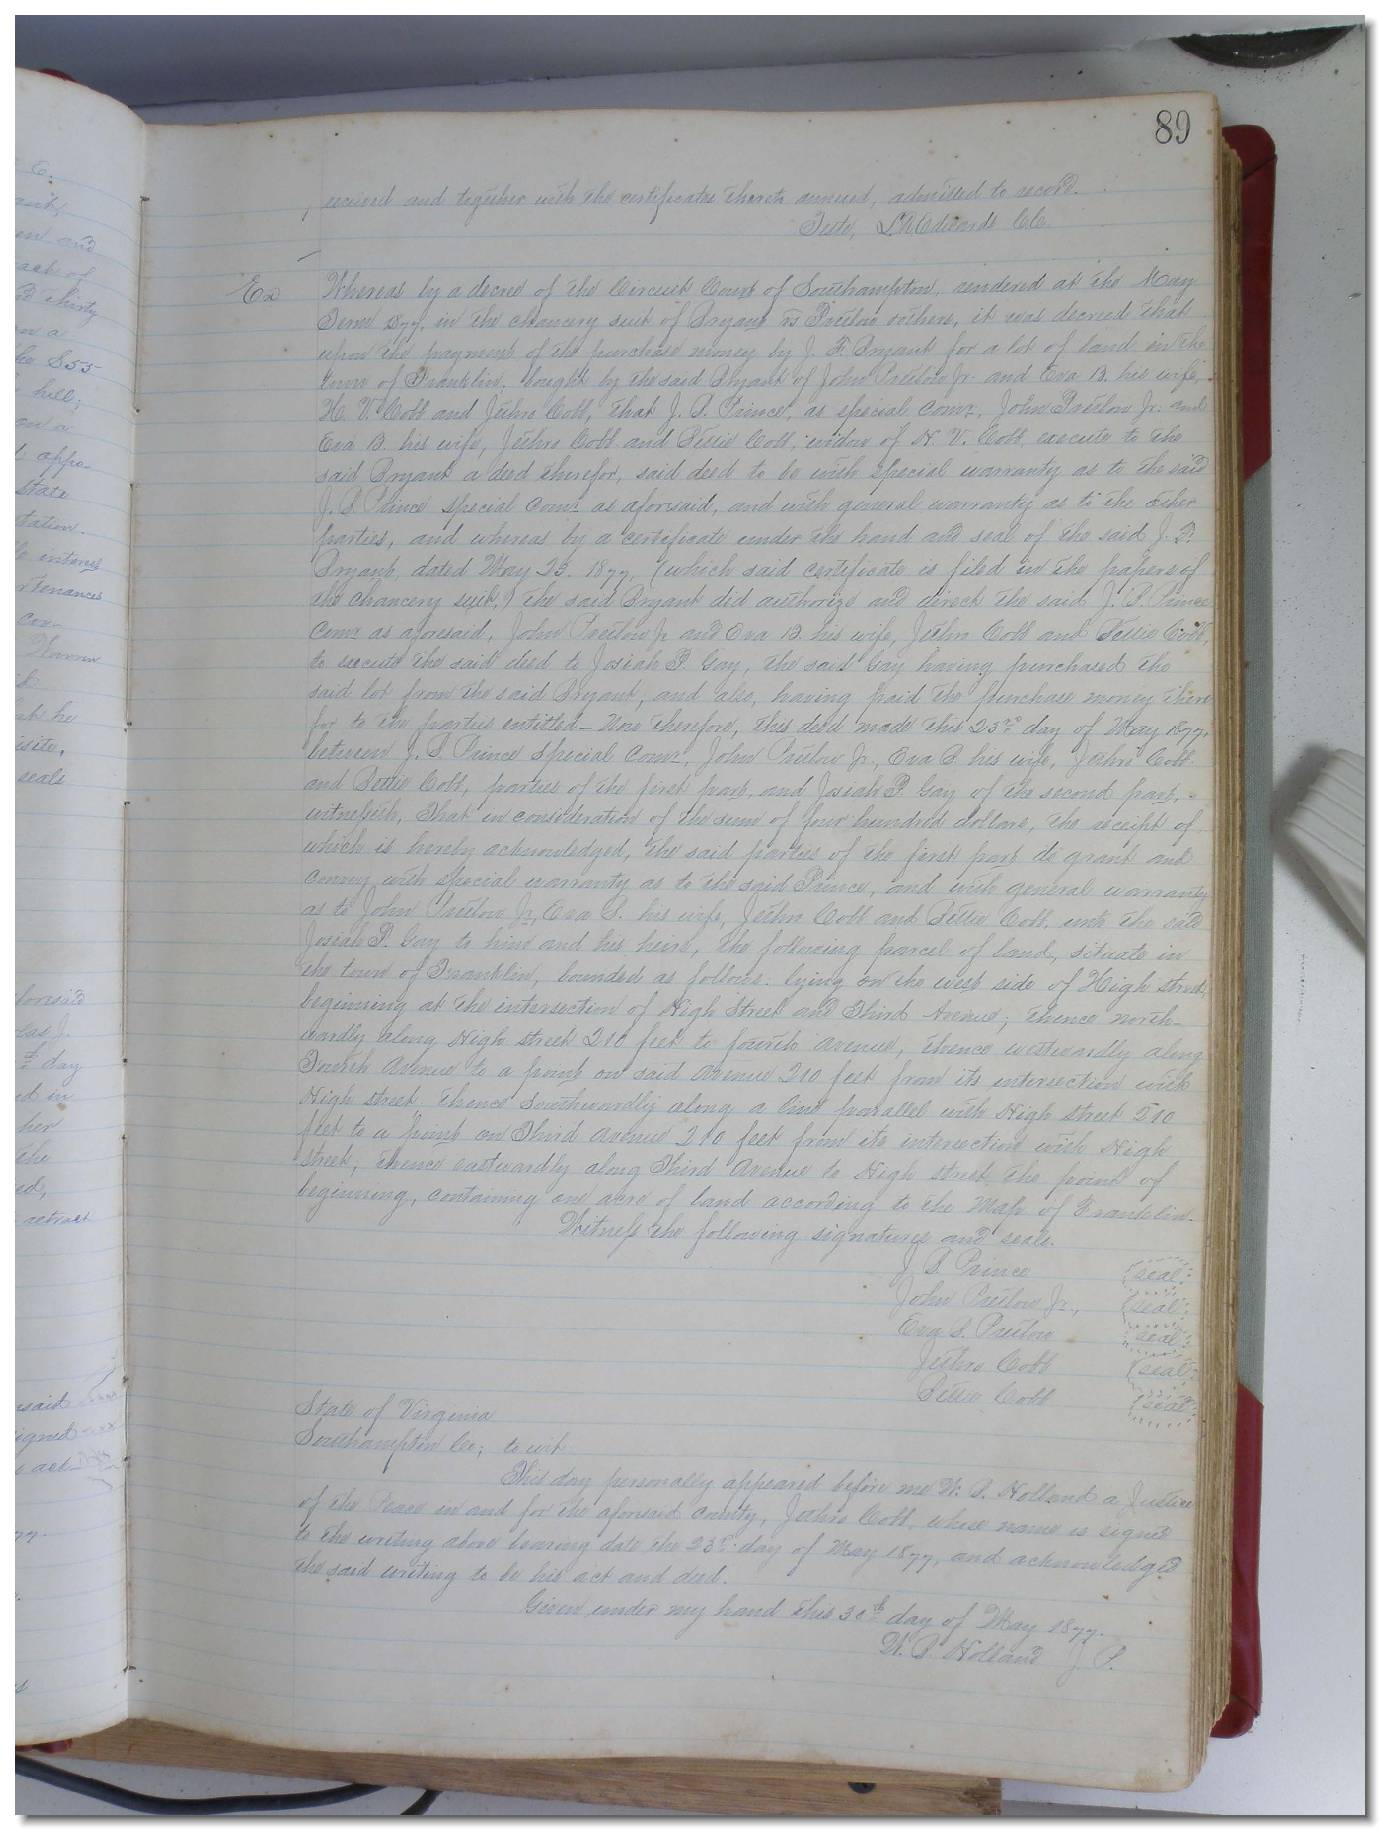 89
received and together with the certificates thereto annexed, admitted to record.
Teste, L. R. Edwards C.C.
Ex
Whereas by a decree of the Circuit Court of Southampton, rendered at the May
Term 1877, in the chancery suit of Bryant vs Pretlow & others, it was decreed that
upon the payment of the purchase money by J. F. Bryant for a lot of land in the
town of Franklin, bought by the said Bryant of John Pretlow Jr. and Eva B. his wife,
H. V. Cobb and Jethro Cobb, that J. B. Prince, as special Comr., John Pretlow Jr. and
Eva B. his wife, Jethro Cobb and Bettie Cobb, widow of N. V. Cobb, execute to the
said Bryant a deed therefor, said deed to be with special warranty as to the said
J. B. Prince special Comr. as aforesaid, and with general warranty as to the other
parties, and whereas by a certificate under the hand and seal of the said J. F.
Bryant, dated May 23. 1877, (which said certificate is filed in the papers of
the chancery suit,) the said Bryant did authorize and direct the said J. B. Prince
Comr. as aforesaid, John Pretlow Jr and Eva B. his wife, Jethro Cobb and Bettie Cobb,
to execute the said deed to Josiah P. Gay, the said Gay having purchased the
said lot from the said Bryant, and also, having paid the purchase money there
for to the parties entitled - Now therefore, this deed made this 23rd day of May 1877,
between J. B. Prince special Comr., John Pretlow Jr., Eva B. his wife, Jethro Cobb
and Bettie Cobb, parties of the first part, and Josiah P. Gay of the second part,
witnesseth, That in consideration of the sum of four hundred dollars, the receipt of
which is hereby acknowledged, the said parties of the first part do grant and
convey with special warranty as to the said Prince, and with general warranty
as to John Pretlow Jr., Eva B. his wife, Jethro Cobb and Bettie Cobb, unto the said
Josiah P. Gay to him and his heirs, the following parcel of land, situate in
the town of Franklin, bounded as follows: lying on the west side of High street,
beginning at the intersection of High Street and Third Avenue; thence north-
wardly along High street 210 feet to fourth avenue, thence westwardly along
Fourth Avenue to a point on said Avenue 210 feet from its intersection with
High street. Thence Southwardly along a line parallel with High street 210
feet to a point on Third Avenue 210 feet from its intersection with High
street; thence eastwardly along Third Avenue to High street, the point of
beginning, containing one acre of land according to the Map of Franklin.
Witness the following signatures and seals.
J. B. Prince seal
John Pretlow Jr., seal
Eva B. Pretlow seal
Jethro Cobb seal
Bettie Cobb seal
State of Virginia
Southampton Co; to wit
This day personally appeared before me W. P. Holland a Justice
of the Peace in and for the aforesaid county, Jethro Cobb, whose name is signed
to the writing above bearing date the 23rd day of May 1877, and acknowledged
the said writing to be his act and deed.
Given under my hand this 30th day of May 1877.
W. P. Holland J. P.